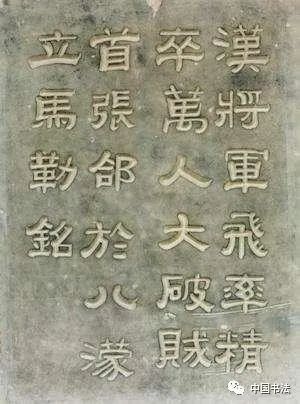 漢將軍飛率精
卒萬人大破賊
首張郃於八濛
立馬勒銘
中国书法